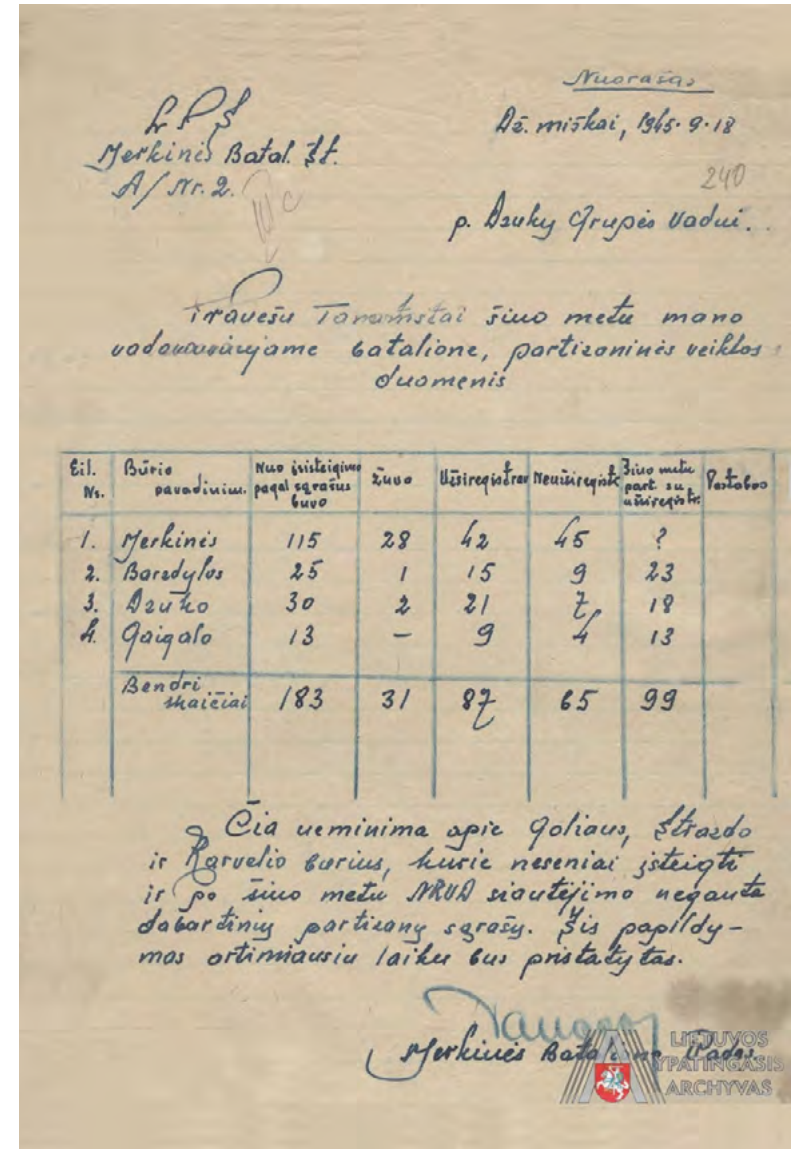 Nuorašas
L P Š
Merkinės Batal. Št.
A/ Nr. 2.
III c
Dz. miškai, 1945. 9. 18
240
p. Dzukų Grupės Vadui.
Pravešu Tamstai šiuo metu mano
vadovaujame batalione, partizaninės veiklos
duomenis
Eil. Nr. | Būrio pavadinim. | Nuo įsisteigimo pagal sąrašus buvo | Žuvo | Užsiregistrav | Neužsiregistr. | Šiuo metu part. su užsiregistr. | Pastabos
1. Merkinės 115 28 42 45 ?
2. Barzdylos 25 1 15 9 23
3. Dzuko 30 2 21 7 18
4. Gaigalo 13 – 9 4 13
Bendri skaičiai 183 31 87 65 99
Čia neminima apie Goliaus, Strazdo
ir Karvelio būrius, kurie neseniai įsteigti
ir po šiuo metu NKVD siautėjimo negauta
dabartinių partizanų sąrašų. Šis papildy-
mas artimiausiu laiku bus pristatytas.
Merkinės Bataliono Vadas
LIETUVOS
YPATINGASIS
ARCHYVAS